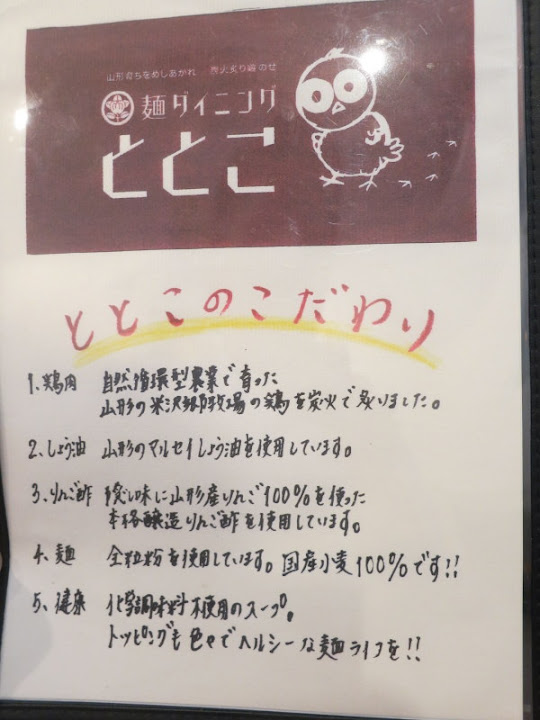 山形育ちをめしあがれ 炭火炙り鶏のせ
麺ダイニング
ととこ
ととこのこだわり
1、鶏肉 自然循環型農業で育った
山形の米沢郷牧場の鶏を炭火で炙りました。
2、しょう油 山形のマルセイしょう油を使用しています。
3、りんご酢 隠し味に山形産りんご100%を使った
本格醸造りんご酢を使用しています。
4、麺 全粒粉を使用しています。国産小麦100%です!!
5、健康 化学調味料不使用のスープ。
トッピングも色々でヘルシーな麺ライフを!!